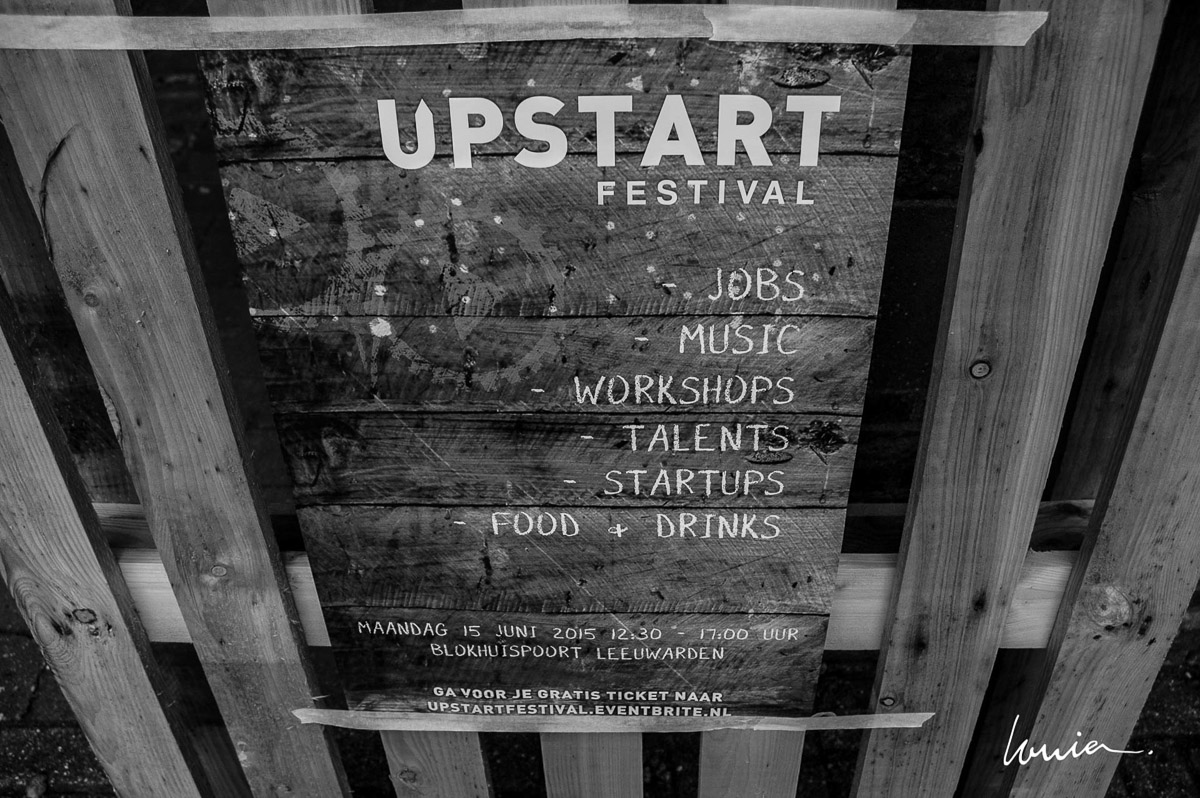 UPSTART
FESTIVAL
- JOBS
- MUSIC
- WORKSHOPS
- TALENTS
- STARTUPS
- FOOD & DRINKS
MAANDAG 15 JUNI 2015 12:30 - 17:00 UUR
BLOKHUISPOORT LEEUWARDEN
GA VOOR JE GRATIS TICKET NAAR
UPSTARTFESTIVAL.EVENTBRITE.NL